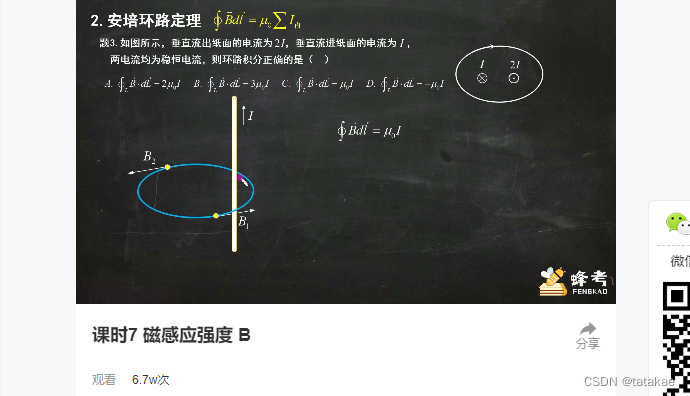 2. 安培环路定理 ∮B̄dl̄ = μ₀∑I内
题3. 如图所示，垂直流出纸面的电流为 2I，垂直流进纸面的电流为 I，
两电流均为稳恒电流，则环路积分正确的是（ ）
I 2I
A. ∮_L B̄·dl̄ = 2μ₀I B. ∮_L B̄·dl̄ = 3μ₀I C. ∮_L B̄·dl̄ = μ₀I D. ∮_L B̄·dl̄ = −μ₀I
I
∮B̄dl̄ = μ₀I
B₂
B₁
蜂考
FENGKAO
课时7 磁感应强度 B
分享
微信
观看 6.7w次
CSDN @tatakae